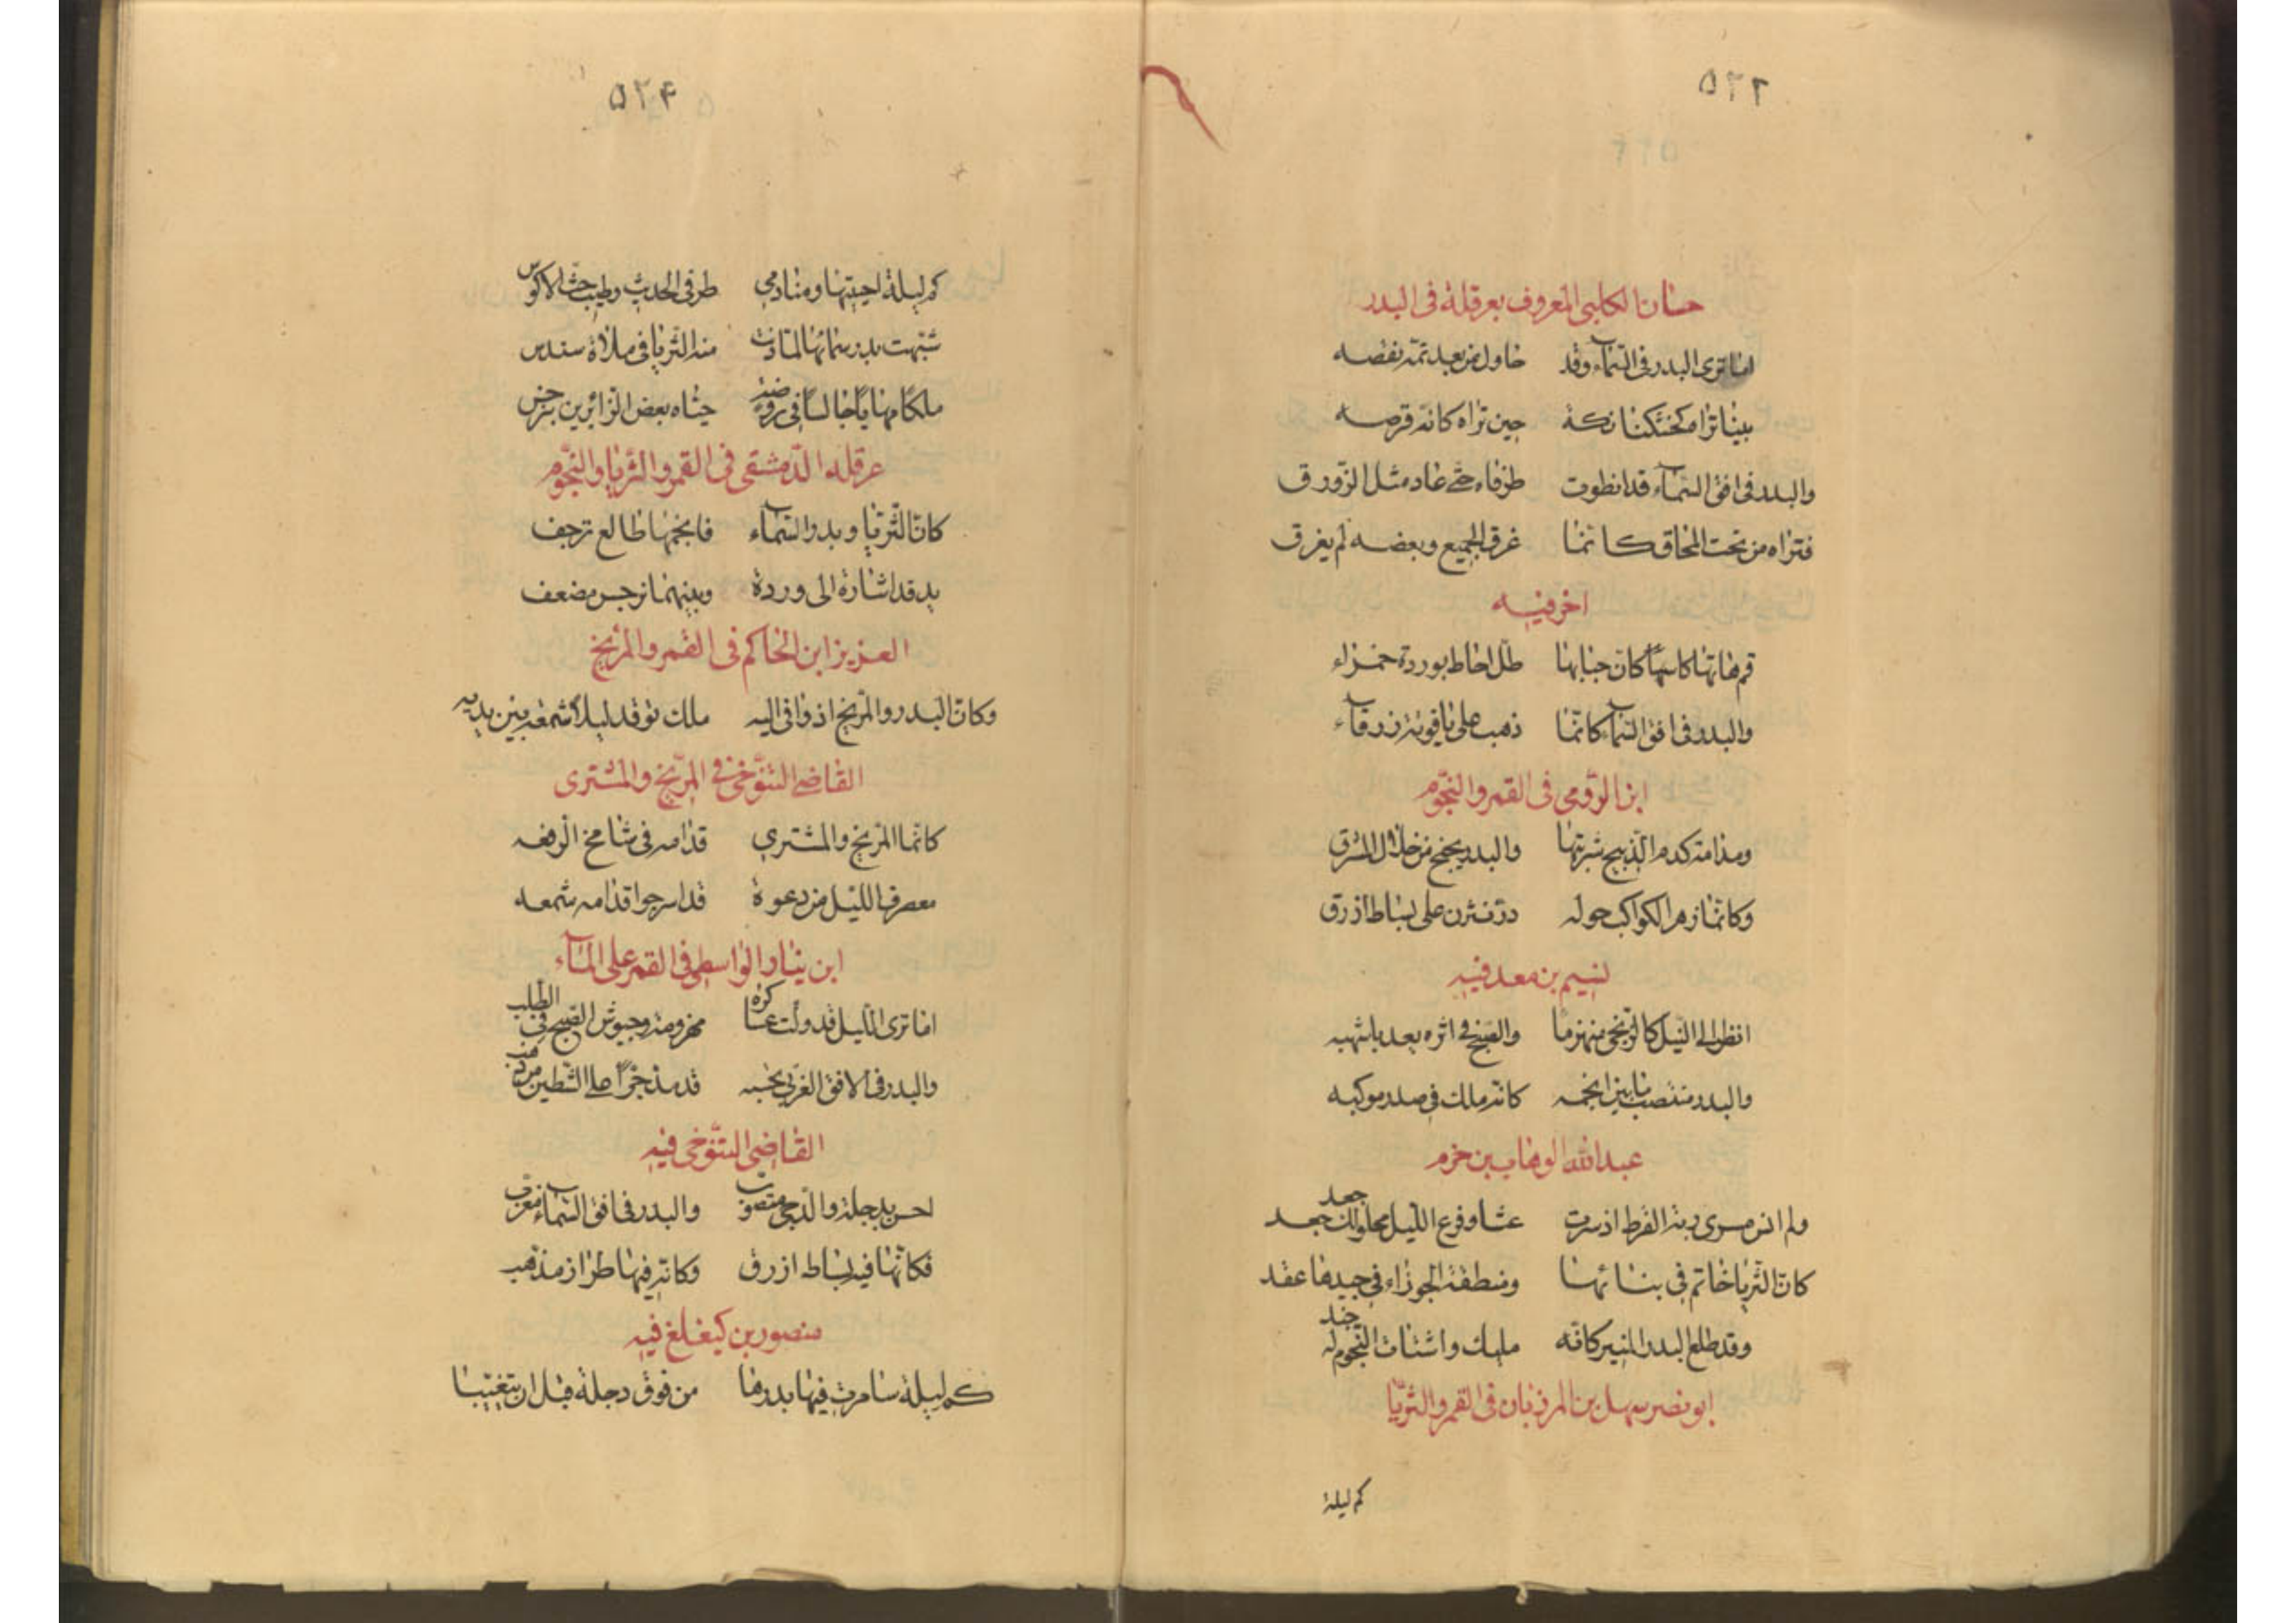 ٥٢٣
حسان الكلبي المعروف بعرقلة في البدر
اما ترى البدر في السماء وقد حاول من بعد تمه نقصه
بينا تراه كخشكنانكة حين تراه كانه قرصه
والبدر في افق السماء قد انطوت طرفاه حتى عاد مثل الزورق
فتراه من تحت المحاق كانما غرق الجميع وبعضه لم يغرق
اخر فيه
قم هاتها كاسها كان حبابها طل احاط بوردة حمراء
والبدر في افق السماء كانما ذهب على ياقوتة زرقاء
ابن الرومي في القمر والنجوم
ومدامة كدم الذبيح شربتها والبدر يجنح من خلال المشرق
وكانما زهر الكواكب حوله درر نثرن على بساط ازرق
نسيم بن معد فيه
انظر الى الليل كالزنجي منهزما والصبح في اثره يعد باشهبه
والبدر منتصب ما بين انجمه كانه ملك في صدر موكبه
عبد الله الوهاب بن حزم
ولم انس مسرى ربة القرط اذ سرت عشا وفرع الليل محلولك جعد
كان الثريا خاتم في بنانها ومنطقة الجوزاء في جيدها عقد
وقد طلع البدر المنير كانه مليك واشتات النجوم له جند
ابو نصر سهل بن المرزبان في القمر والثريا
كم ليلة
٥٢٤
كم ليلة احييتها ومنادمي طرف الحديث وطيب حث الاكوس
شبهت بدر سمائها لما دنت منه الثريا في ملاءة سندس
ملكا مهيبا جالسا في روضة حياه بعض الزائرين بنرجس
عرقلة الدمشقي في القمر والثريا والنجوم
كان الثريا وبدر السماء فانجمها طالع ترجف
يد قد اشارة الى وردة وبينهما نرجس مضعف
العزيز ابن الحاكم في القمر والمريخ
وكان البدر والمريخ اذ وافى اليه ملك توقد ليلا شمعه بين يديه
القاضي التنوخي في المريخ والمشتري
كانما المريخ والمشتري قدامه في شامخ الرفعه
منصرف الليل من دعوة قد اسرجوا قدامه شمعه
ابن ينار الواسطي في القمر على الماء
اما ترى الليل قد ولت عساكره مهزومة وجيوش الصبح في الطلب
والبدر في الافق الغربي تحسبه قد مد جسرا على الشطين من ذهب
القاضي التنوخي فيه
احسن بدجلة والدجى متصوب والبدر في افق السماء مغرب
فكانها فيه بساط ازرق وكانه فيها طراز مذهب
منصور بن كيغلغ فيه
كم ليلة سامرت فيها بدرها من فوق دجلة قبل ان يتغيبا